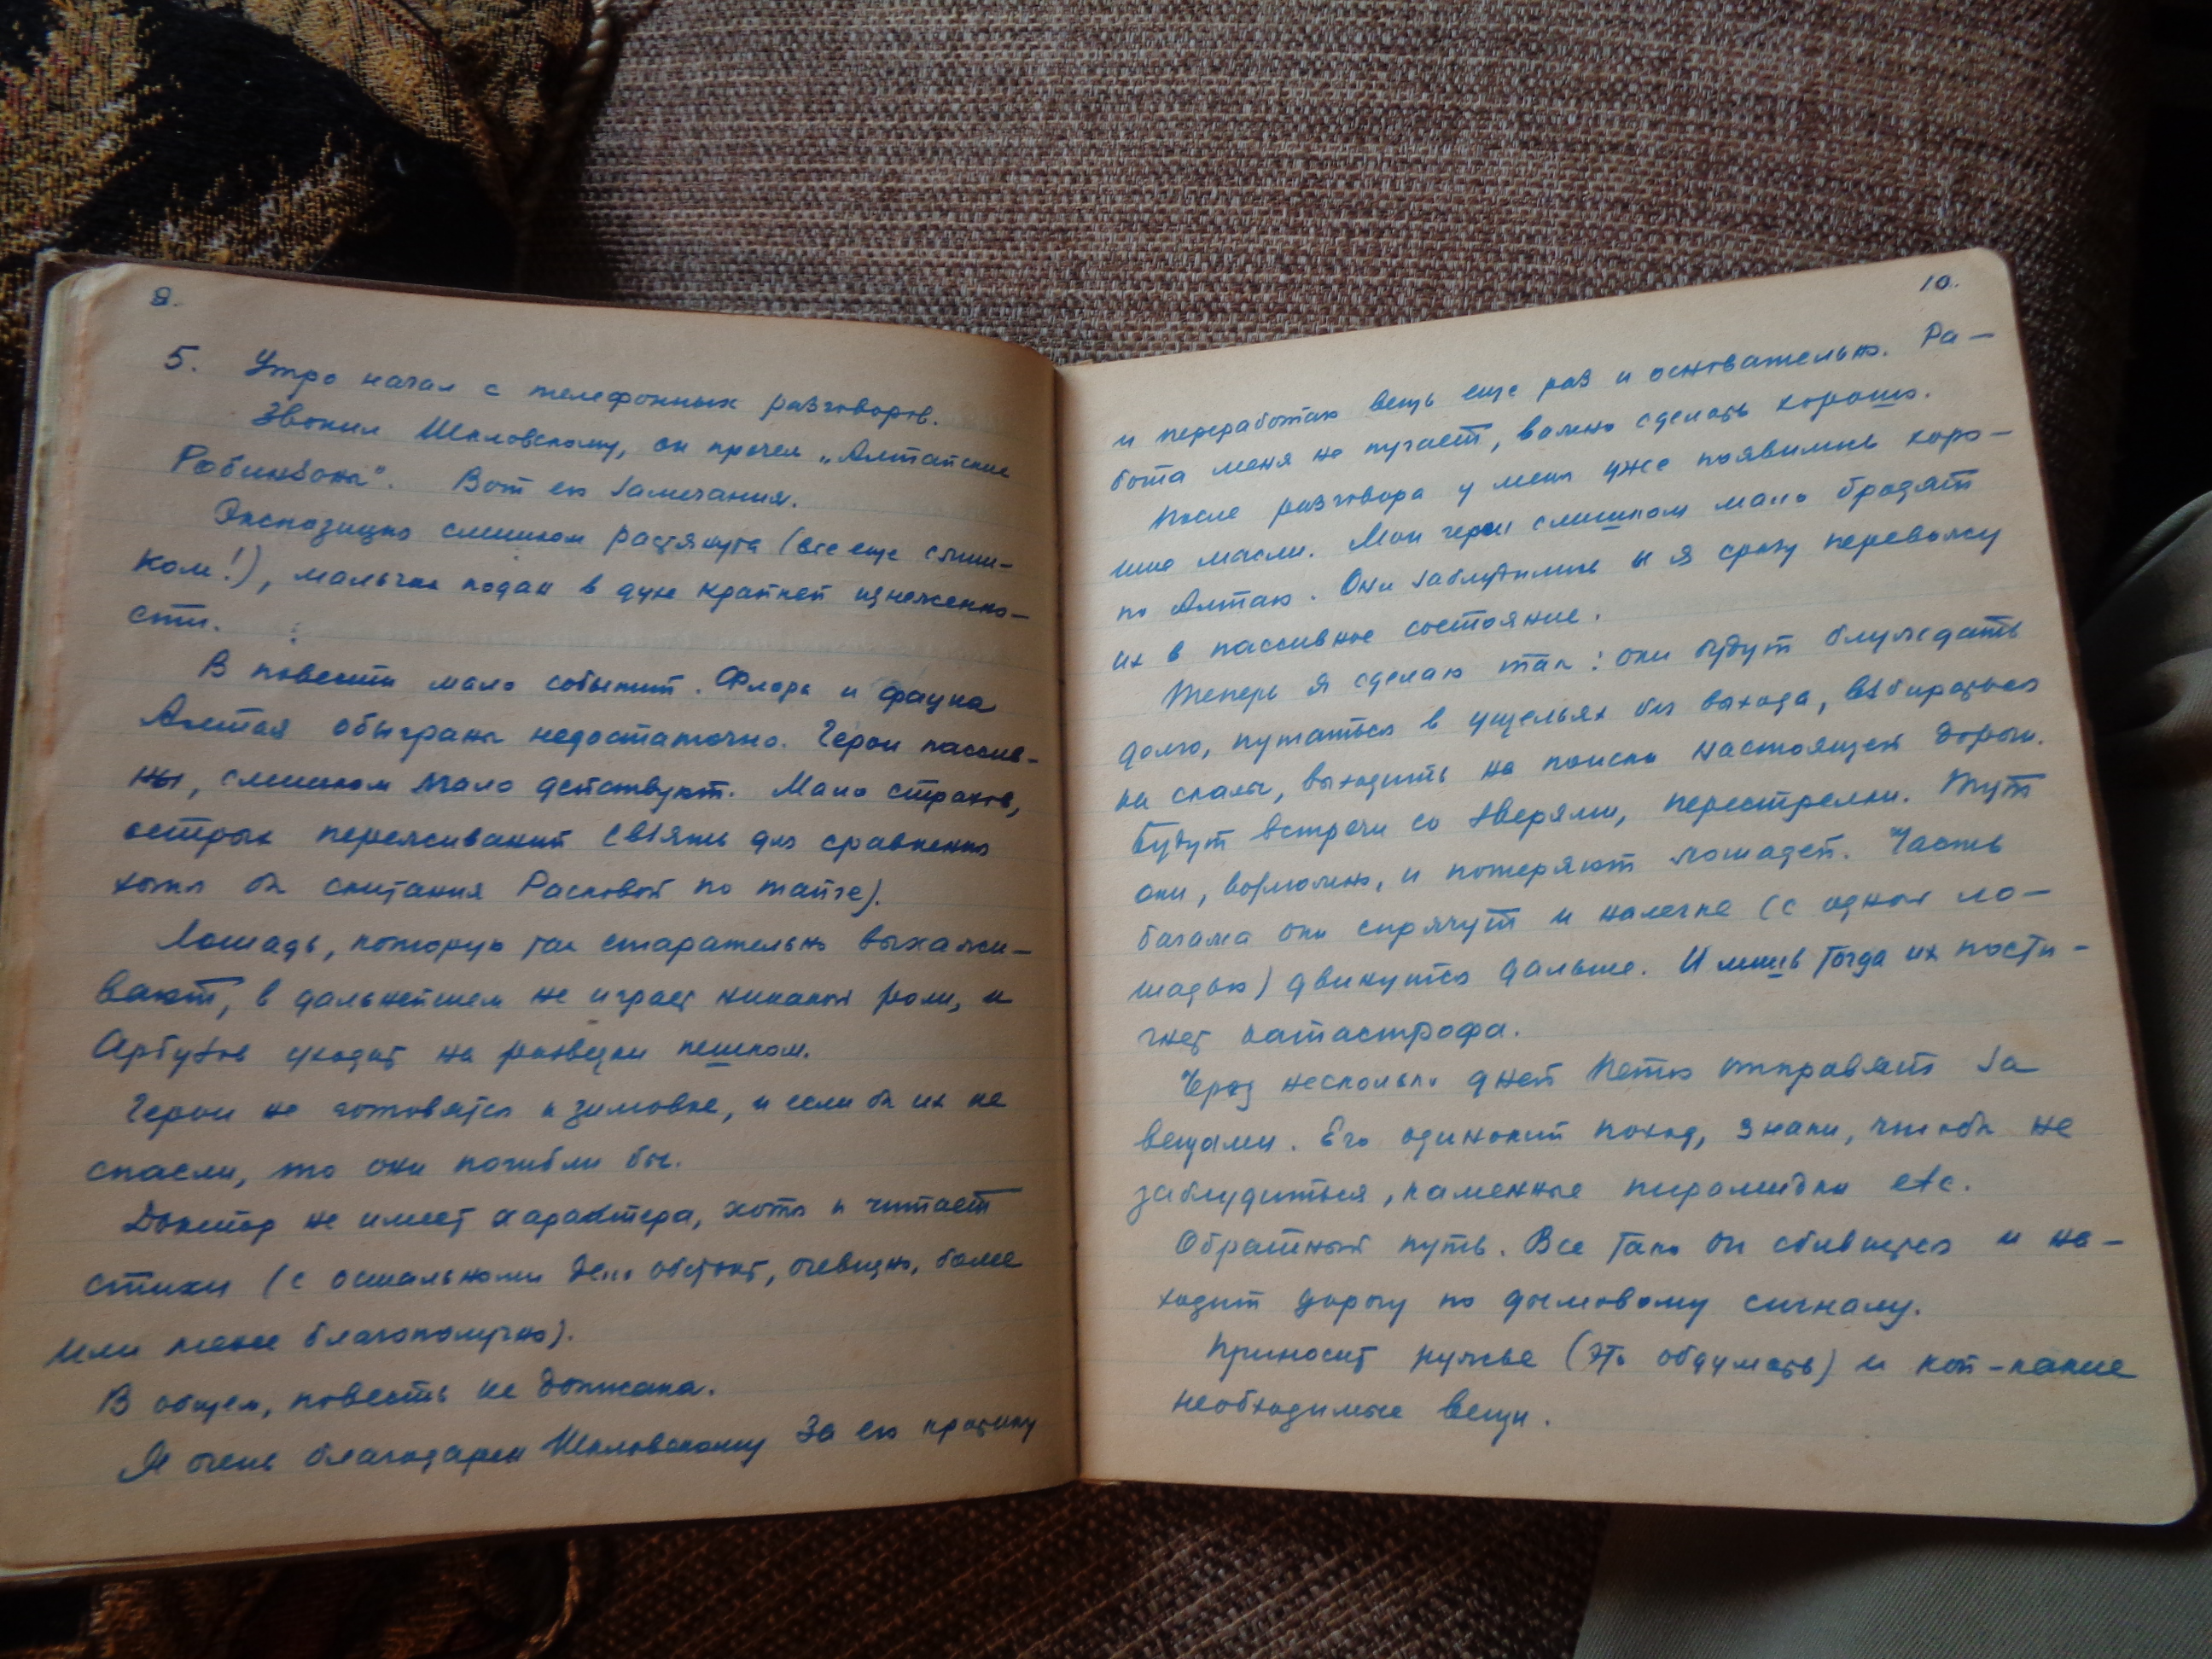 9.
5. Утро начал с телефонных разговоров.
Звонил Шкловскому, он прочел „Алтайские
Робинзоны". Вот его замечания.
Экспозиция слишком растянута (все еще слиш-
ком!), мальчик подан в духе крайней изнеженно-
сти.
В повести мало событий. Флора и фауна
Алтая обыграны недостаточно. Герои пассив-
ны, слишком мало действуют. Мало страхов,
острых переживаний (взять для сравнения
хотя бы скитания Расковой по тайге).
Лошадь, которую так старательно выхажи-
вают, в дальнейшем не играет никакой роли, и
Арбузов уходит на разведки пешком.
Герои не готовятся к зимовке, и если бы их не
спасли, то они погибли бы.
Доктор не имеет характера, хотя и читает
стихи (с остальными дело обстоит, очевидно, более
или менее благополучно).
В общем, повесть не дожата.
Я очень благодарен Шкловскому за его критику
10.
и переработаю вещь еще раз и основательно. Ра-
бота меня не пугает, важно сделать хорошо.
После разговора у меня уже появились хоро-
шие мысли. Мои герои слишком мало бродят
по Алтаю. Они заблудились и я сразу перевожу
их в пассивное состояние.
Теперь я сделаю так: они будут блуждать
долго, путаться в ущельях без выхода, взбираться
на скалы, выходить на поиски настоящей дороги.
Будут встречи со зверями, перестрелки. Тут
они, возможно, и потеряют лошадей. Часть
багажа они спрячут и налегке (с одной ло-
шадью) двинутся дальше. И лишь тогда их пости-
гнет катастрофа.
Через несколько дней Петю отправят за
вещами. Его одинокий поход, знаки, чтобы не
заблудиться, каменные пирамидки etc.
Обратный путь. Все таки он сбивается и на-
ходит дорогу по дымовому сигналу.
Приносит ружье (это обдумать) и кой-какие
необходимые вещи.